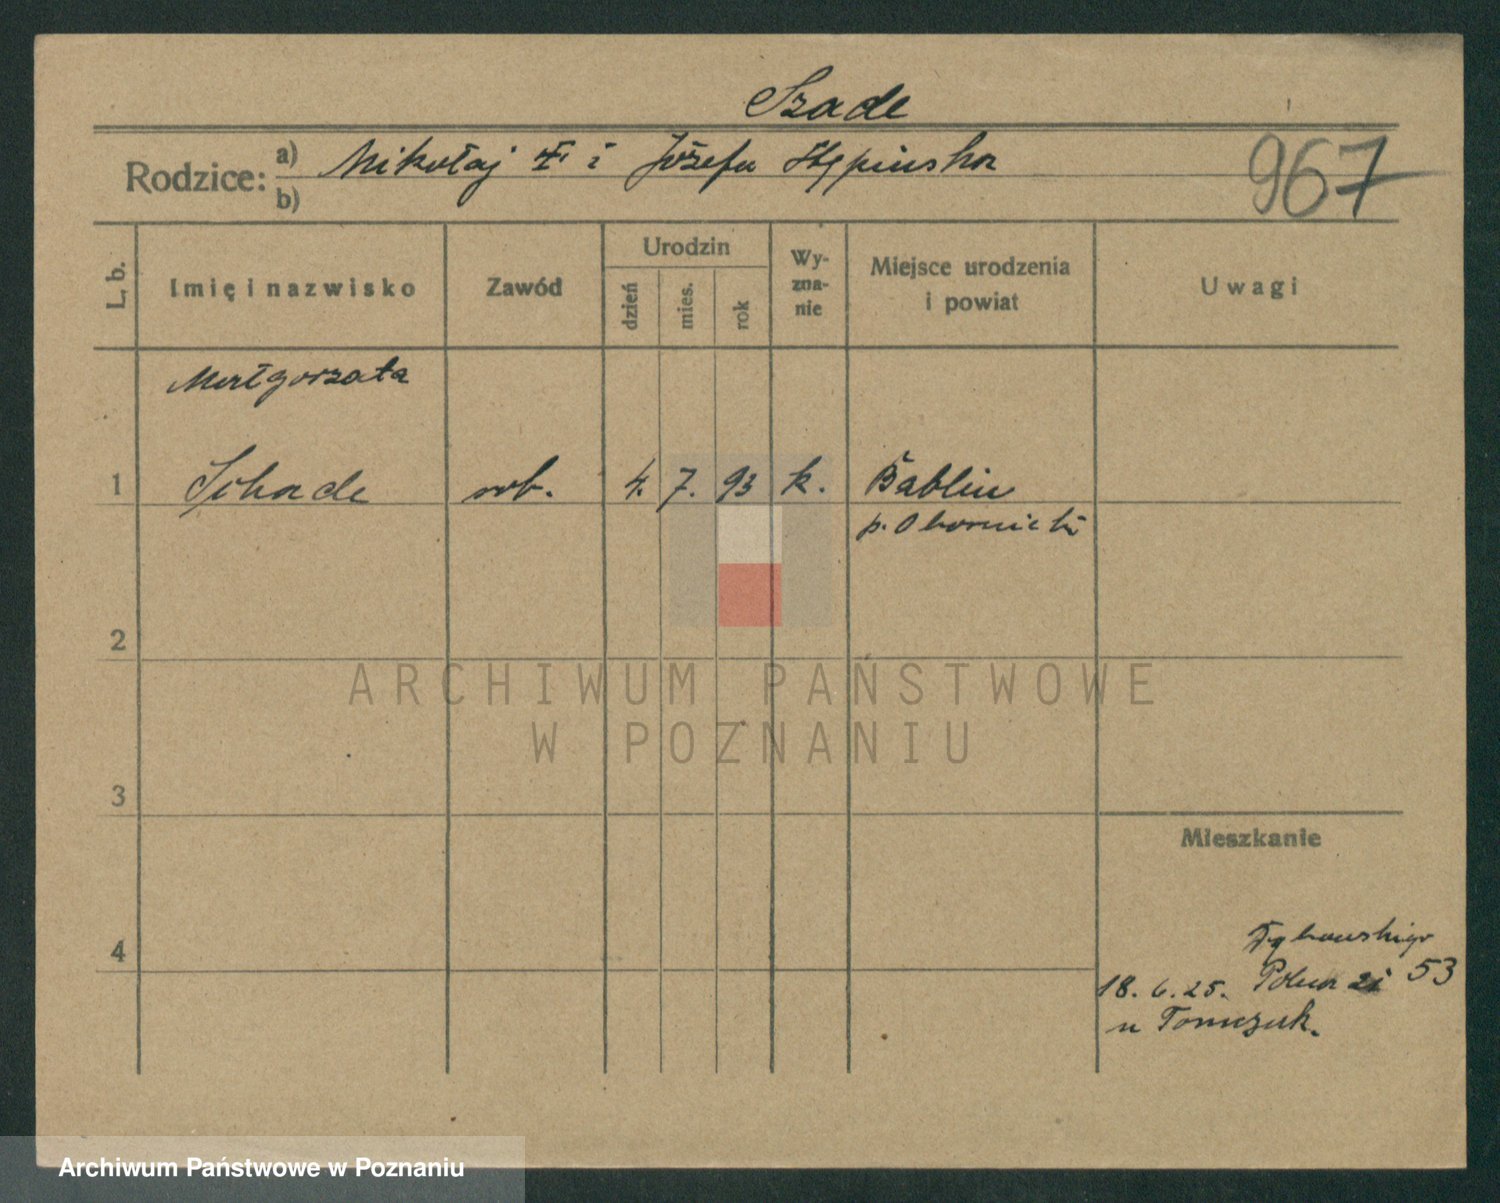 Szade
Rodzice: a) Mikołaj i Józefa Stępińska
b)
967
L. b.
Imię i nazwisko
Zawód
Urodzin
dzień
mies.
rok
Wy-
zna-
nie
Miejsce urodzenia
i powiat
Uwagi
Małgorzata
1 Schade rob. 4. 7. 93 k. Bablin
p. Obornicki
2
3
4
Mieszkanie
53
18. 6. 25. Polna
u Tomczuk.
ARCHIWUM PAŃSTWOWE
W POZNANIU
Archiwum Państwowe w Poznaniu